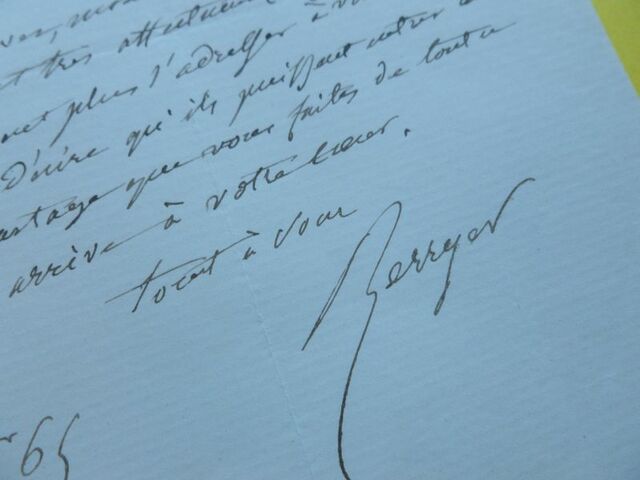 très attentivem
plus s'adresser à vo
Désire qu'ils puissent entrer
partage que vous faites de tout ce
arrive à votre cœur.
tout à vous
Berryer
65